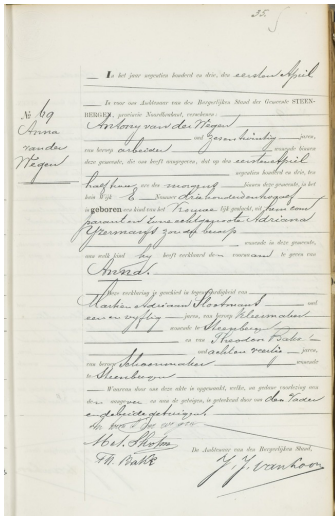 35.
In het jaar negentien honderd en drie, den eersten April
is voor ons Ambtenaar van den Burgerlijken Stand der Gemeente STEEN-
BERGEN, provincie Noordbrabant, verschenen:
Antony van der Wegen
oud zesentwintig jaren,
van beroep arbeider woonende binnen
deze gemeente, die ons heeft aangegeven, dat op den eersten April
negentien honderd en drie, ten
half een ure des morgens binnen deze gemeente, in het
huis wijk E Nummer driehonderd
is geboren een kind van het Vrouwelijk geslacht, uit hem com-
parant en zijne echtgenoote Adriana
IJzermans zonder beroep
woonende in deze gemeente,
aan welk kind hij heeft verklaard de voornaam te geven van
Anna.
№ 69
Anna
van der
Wegen
Deze verklaring is geschied in tegenwoordigheid van
Martin Adriaan Slootmans oud
een en vijftig jaren, van beroep kleermaker
woonende te Steenbergen
en van Theodoor Bakx
oud achtenveertig jaren,
van beroep Schoenmaker woonende
te Steenbergen
Waarvan door ons deze akte is opgemaakt, welke, na gedane voorlezing aan
den aangever en aan de getuigen, is geteekend door ons den Vader
en de beide getuigen
De Ambtenaar van den Burgerlijken Stand,
Th. Bakx
J. J. van Loon